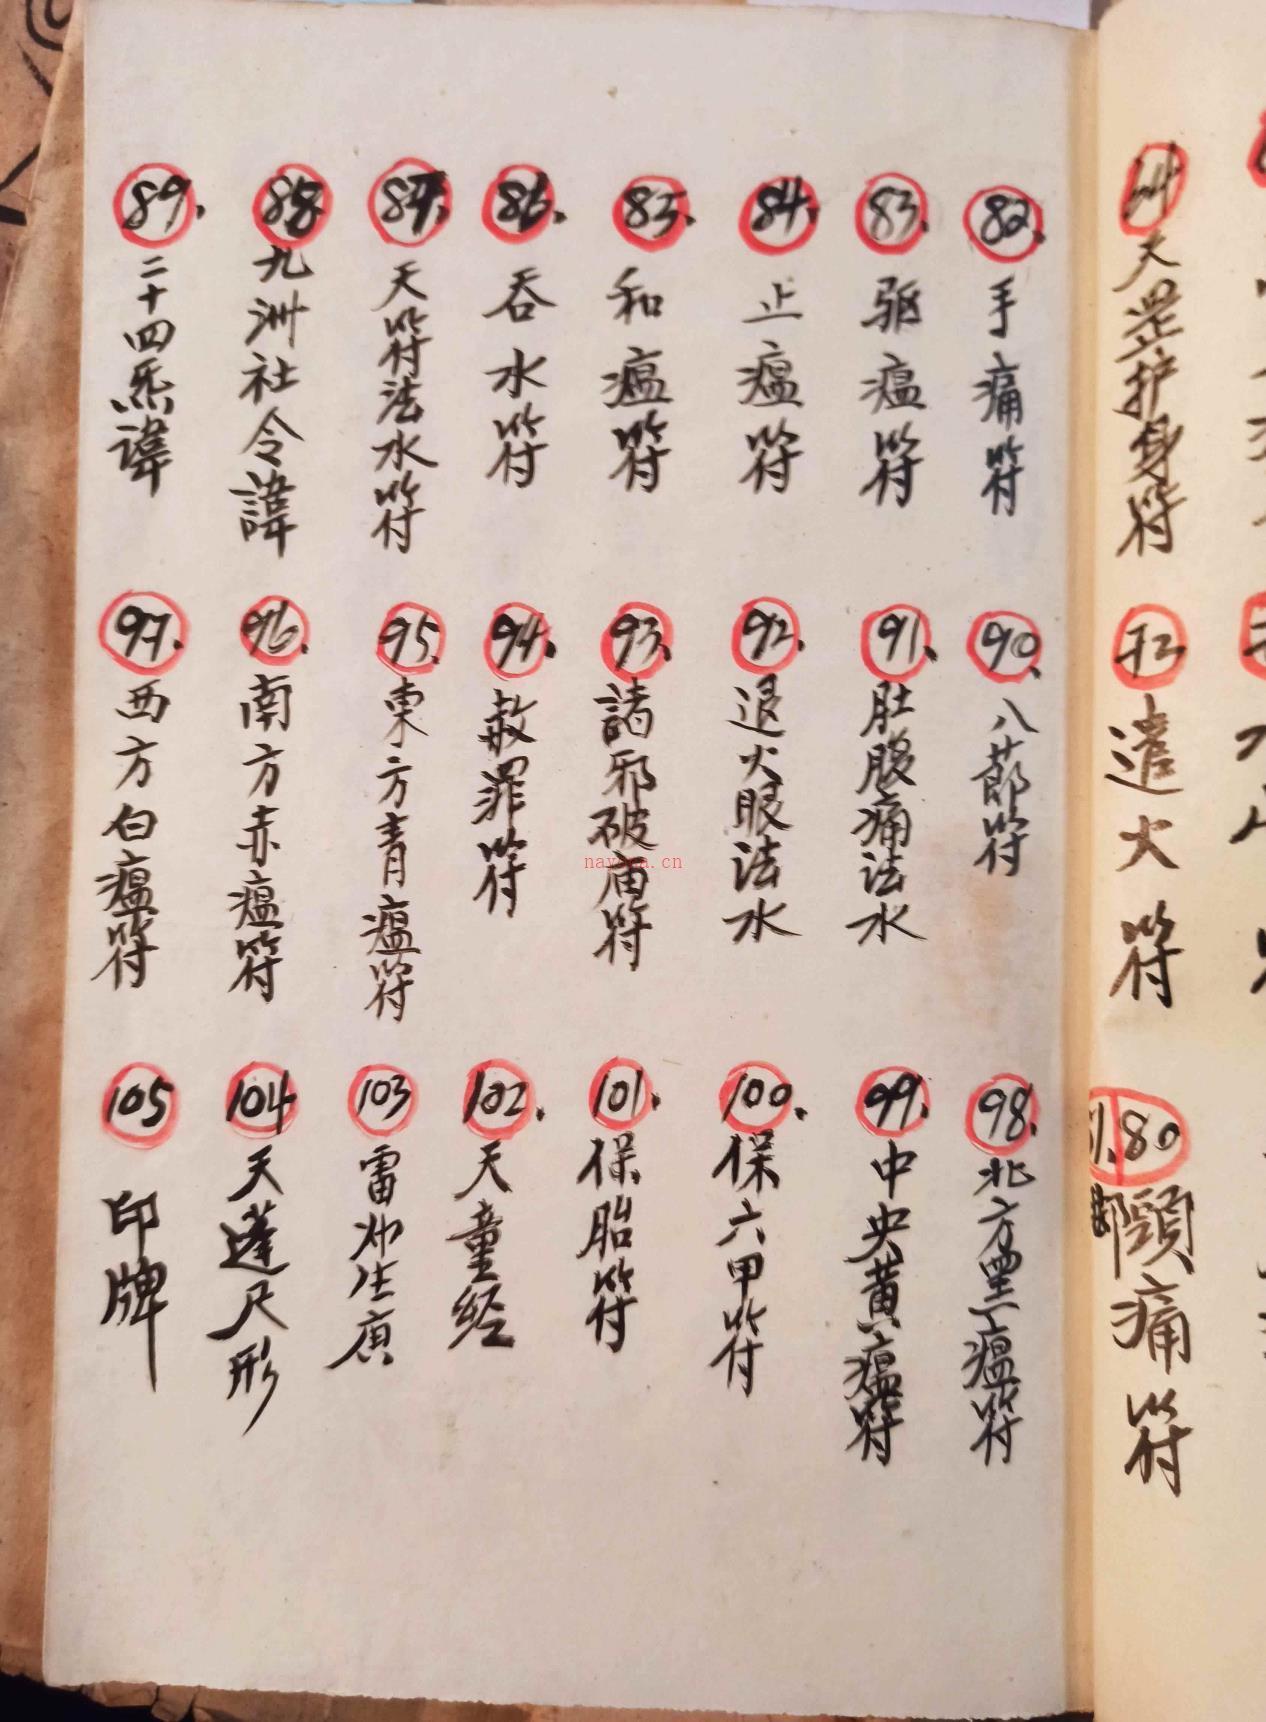 82.
手痛符
83.
驱瘟符
84.
止瘟符
85.
和瘟符
86.
吞水符
87.
天符法水符
88.
九洲社令諱
89.
二十四炁諱
90.
八節符
91.
肚腹痛法水
92.
退火眼法水
93.
諸邪破庙符
94.
赦罪符
95.
東方青瘟符
96.
南方赤瘟符
97.
西方白瘟符
98.
北方黑瘟符
99.
中央黄瘟符
100.
保六甲符
101.
保胎符
102.
天童经
103
雷帅生庚
104
天蓬尺形
105
印牌
64
天罡护身符
72
遣火符
80
頸痛符